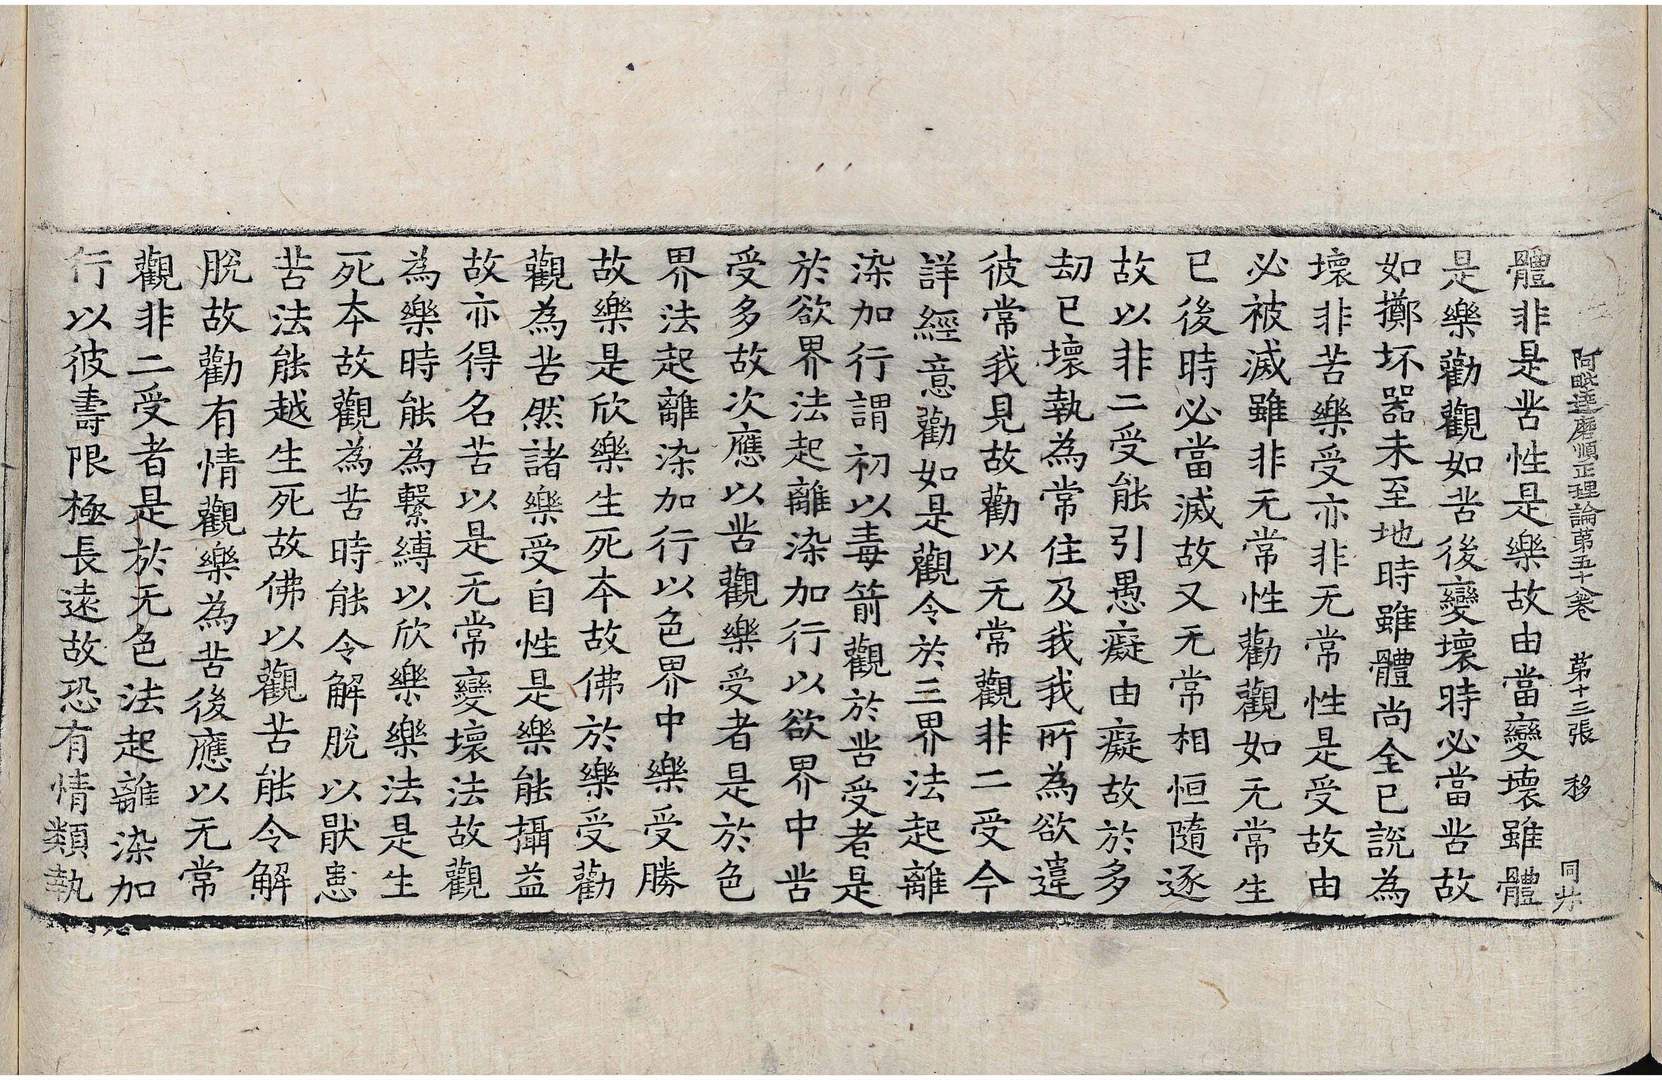 阿毗達磨順正理論第五十八卷　第十三張　移　同卄
體非是苦性是樂故由當變壞雖體
是樂勸觀如苦後變壞時必當苦故
如擲坏器未至地時雖體尚全已說為
壞非苦樂受亦非无常性是受故由
必被滅雖非无常性勸觀如无常生
已後時必當滅故又无常相恒隨逐
故以非二受能引愚癡由癡故於多
劫已壞執為常住及我我所為欲違
彼常我見故勸以无常觀非二受今
詳經意勸如是觀令於三界法起離
染加行謂初以毒箭觀於苦受者是
於欲界法起離染加行以欲界中苦
受多故次應以苦觀樂受者是於色
界法起離染加行以色界中樂受勝
故樂是欣樂生死本故佛於樂受勸
觀為苦然諸樂受自性是樂能攝益
故亦得名苦以是无常變壞法故觀
為樂時能為繫縛以欣樂樂法是生
死本故觀為苦時能令解脫以猒患
苦法能越生死故佛以觀苦能令解
脫故勸有情觀樂為苦後應以无常
觀非二受者是於无色法起離染加
行以彼壽限極長遠故恐有情類執